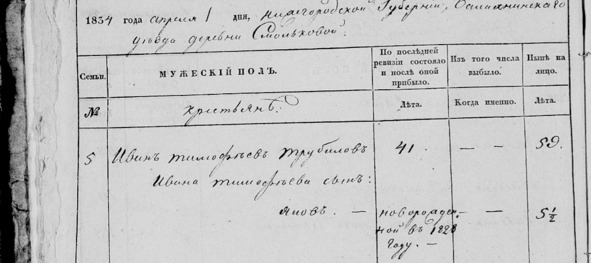 1834 года апреля 1 дня, Нижегородской Губернiи, Балахнинскаго
уѣзда деревни Смольковой:
Семьи. МУЖЕСКIЙ ПОЛЪ. По послѣдней ревизiи состояло и послѣ оной прибыло. Изъ того числа выбыло. Нынѣ на лицо.
№ Крестьянъ: Лѣта. Когда именно. Лѣта.
5 Иванъ Тимофѣевъ Трубиловъ 41 — — 59.
Ивана Тимофѣева сынъ:
Яковъ. — новорожден- — — 5½
ной въ 1828
году. —